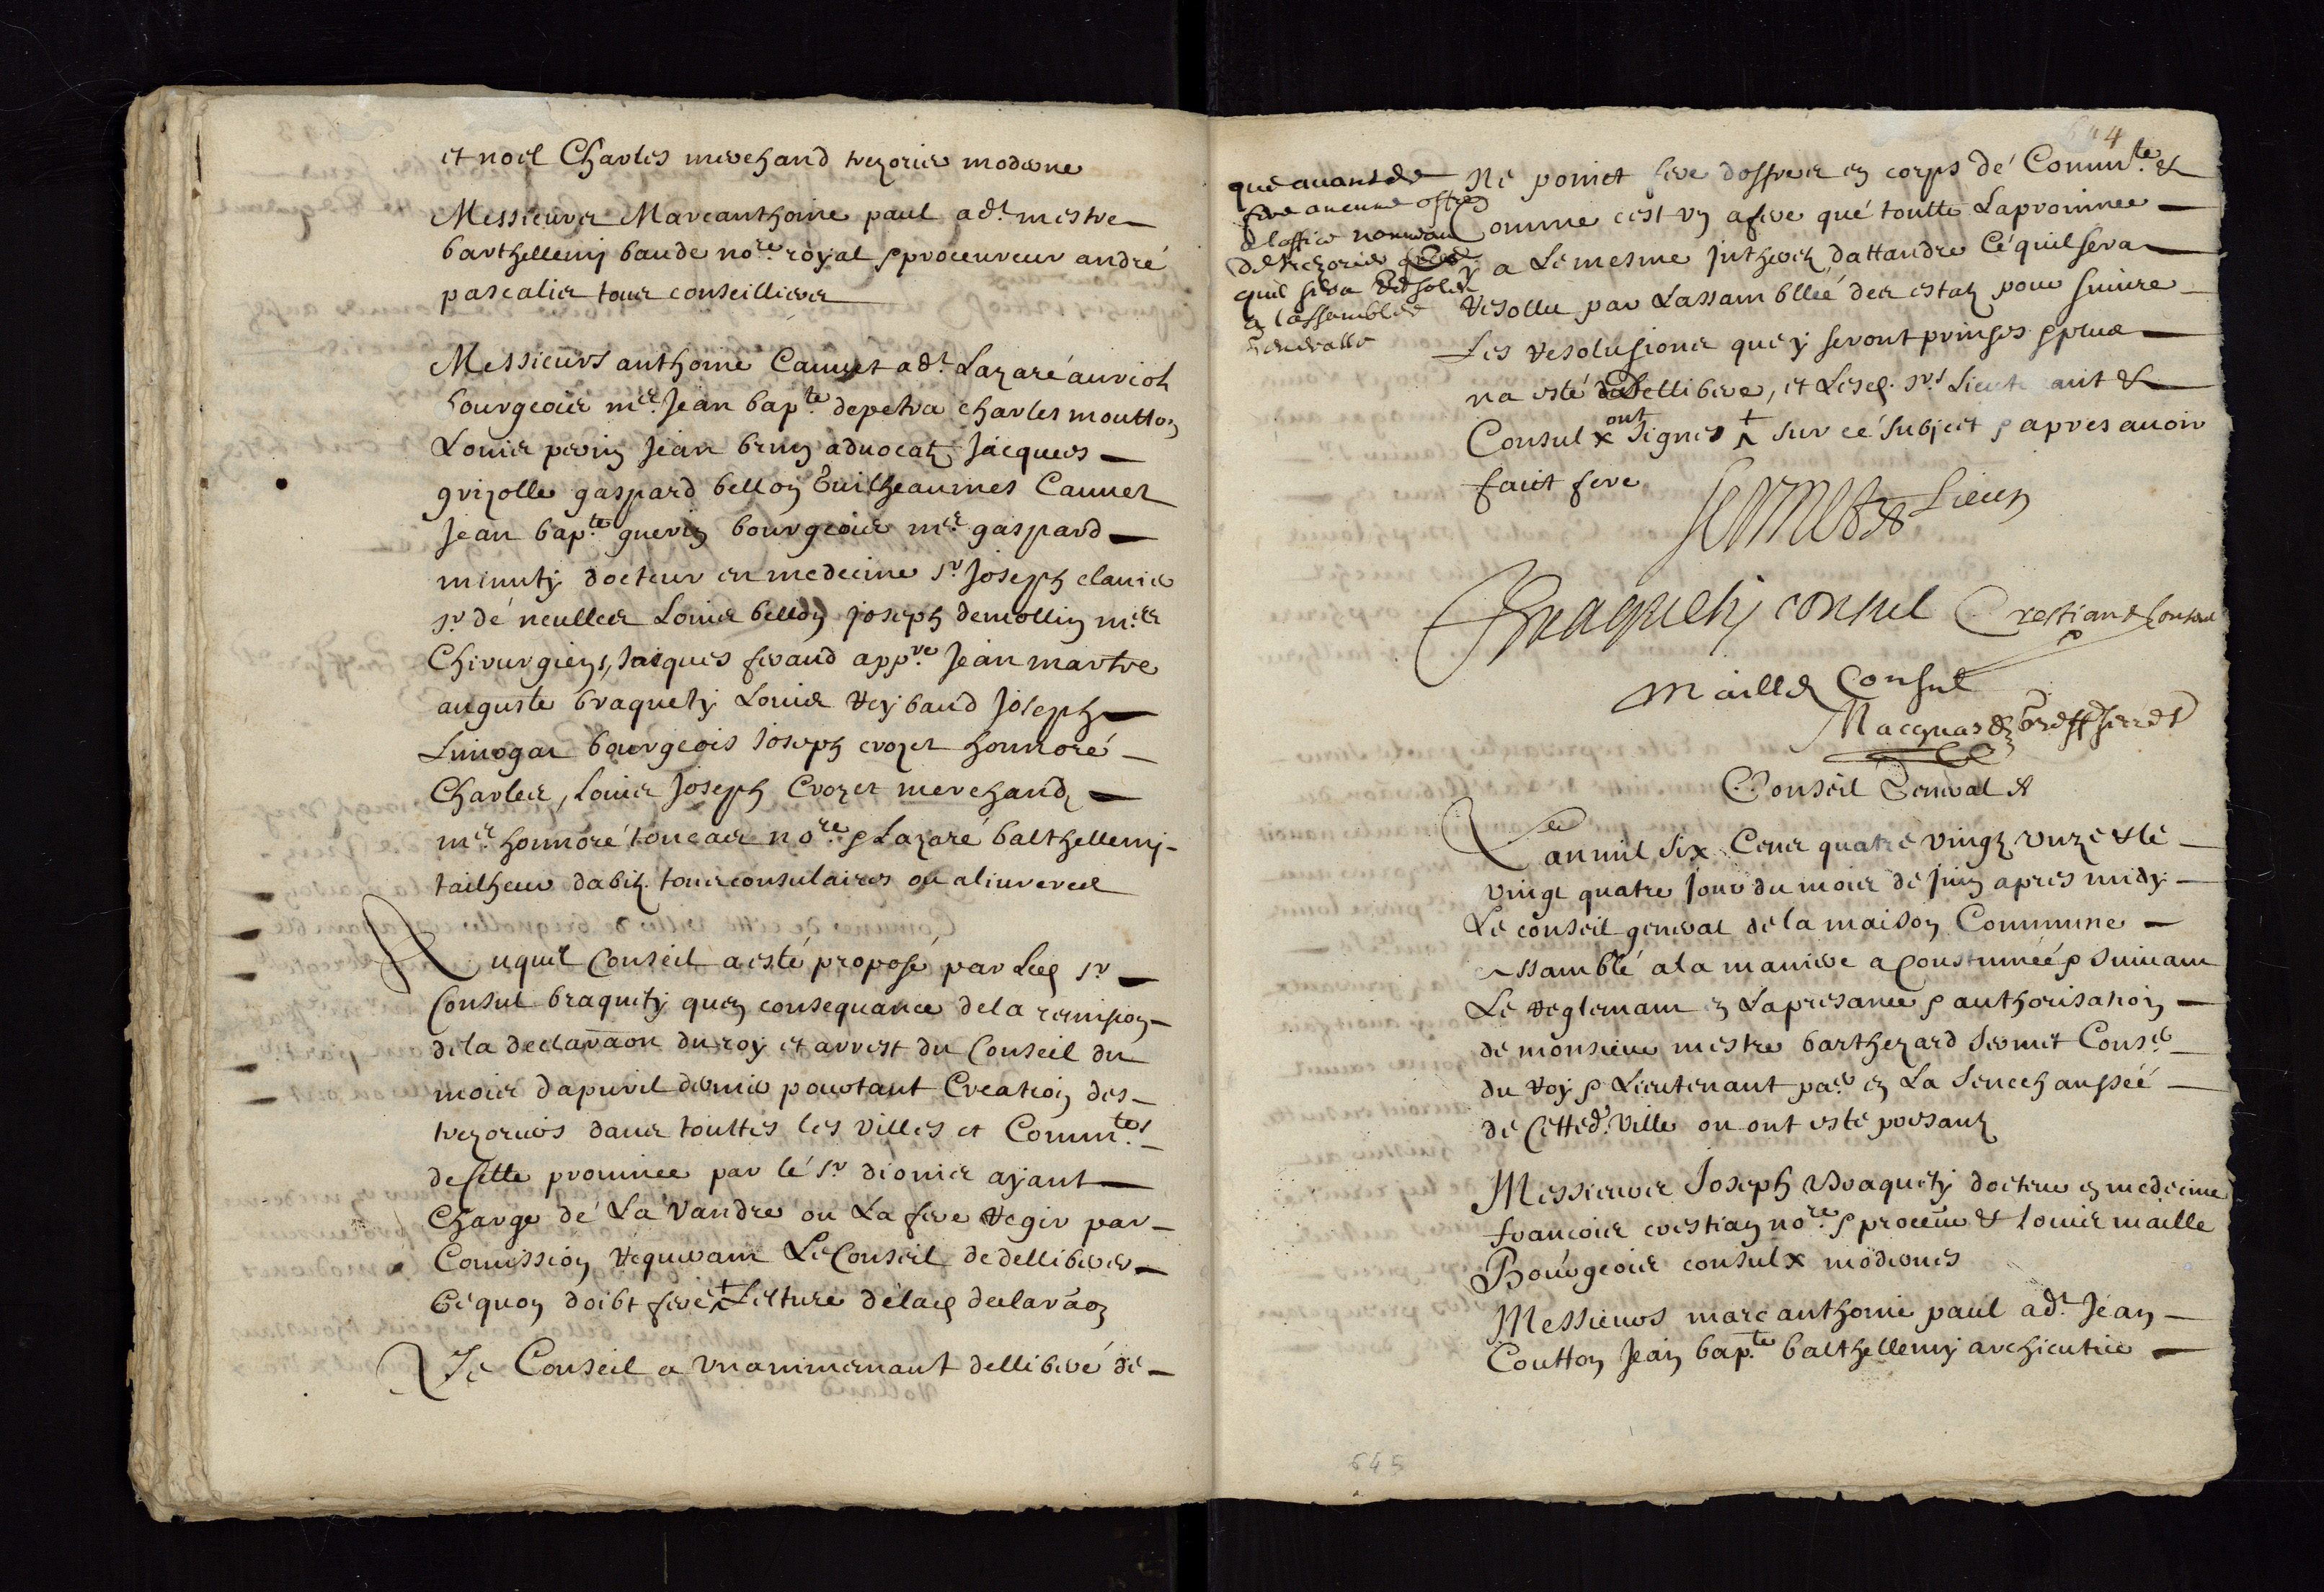 et noel Charles merchand trezorier moderne
Messieurs Marcanthoine paul adt. mestre
barthellemy baude nore. royal & procureur andré
pascalis tous conseilliers
Messieurs anthoine Cannet adt. Lazare auriol
bourgeois mrs. Jean bapte. depetra charles moutton
Louis perin Jean brun advocatz Jacques
grizolle gaspard bellon Guilheaumes Cannet
Jean bapte. guerin bourgeois mre. gaspard
minuty docteur en medecine sr. Joseph clavier
sr. dé neulles Louis bellon joseph demollin mres
Chirurgiens, Jacques feraud appre. Jean martre
auguste braquety Louis reybaud Joseph
Limogar bourgeois Joseph crozet honnoré
Charles, Louis Joseph Crozet merchandz
mre. honnoré toucas nore. & Lazaré balthellemy
tailheur dabitz. tous consulaires ou alivreres
Auquel Conseil a esté proposé par Led sr
Consul braquety quen consequance dela remission
dela declaraon du roy et arrest du Conseil du
mois dapvril dernier pourtant Creation des
trezoriers dans touttes les villes et Commtes.
de cette province par lé sr dionis ayant
Charge dé La vandre ou La fere regir par
Comission requerant Le Conseil de delliberer
Cé quon doibt fere + Lecture délad declaraon
Le Conseil a unanimemant delliberé dé
644
que avant de
fere aucune offre
de loffice nouveau
de trezorier
quil sera resoleu
a lassemblée
generalle
Né point fere doffrer en corps dé Commte. &
Comme cest un afere qué toutte La province
y a Le mesme intherest dattandre Cé quil sera
resollu par Lassambllée des estatz pour suivre
Les resolusions que y seront prinses & plus
na esté delliberé, et Lesd. srs Lieutenant &
Consulx ont signés + sur cé subject & apres avoir
faict fere
sermet Lieutn
Braquety consul Crestian Consul
Maille Consul
Macquard greffier
Conseil General
Lan mil six Cens quatre vingtz unze & le
vingt quatre jour du mois dé juin apres midy
Le conseil general de la maison Commune
assamblé a la maniere acoustumée & suivant
Le reglemant en La presance & authorisation
de monsieur mestre barthezard sermet Conser
du roy & Lieutenant par. en La senechaussée
dé Cetted. ville ou ont esté presantz
Messieurs Joseph Braquety docteur en medecine
francois crestian nore. & procur & louis maille
Bourgeois consulx modernes
Messieurs marc anthoine paul adt. Jean
Coutton Jean bapte. balthellemy archicutie
645